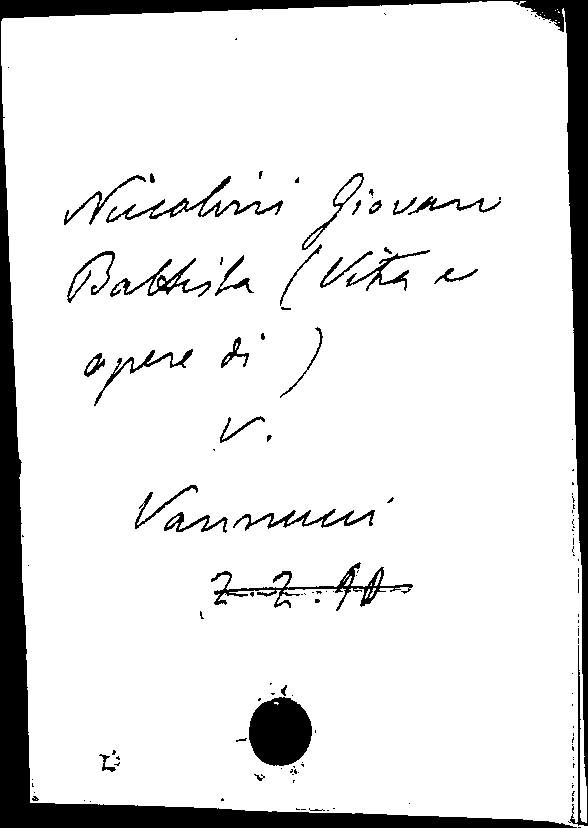 Niccolini Giovan
Battista (Vita e
opere di)
V.
Vannucci